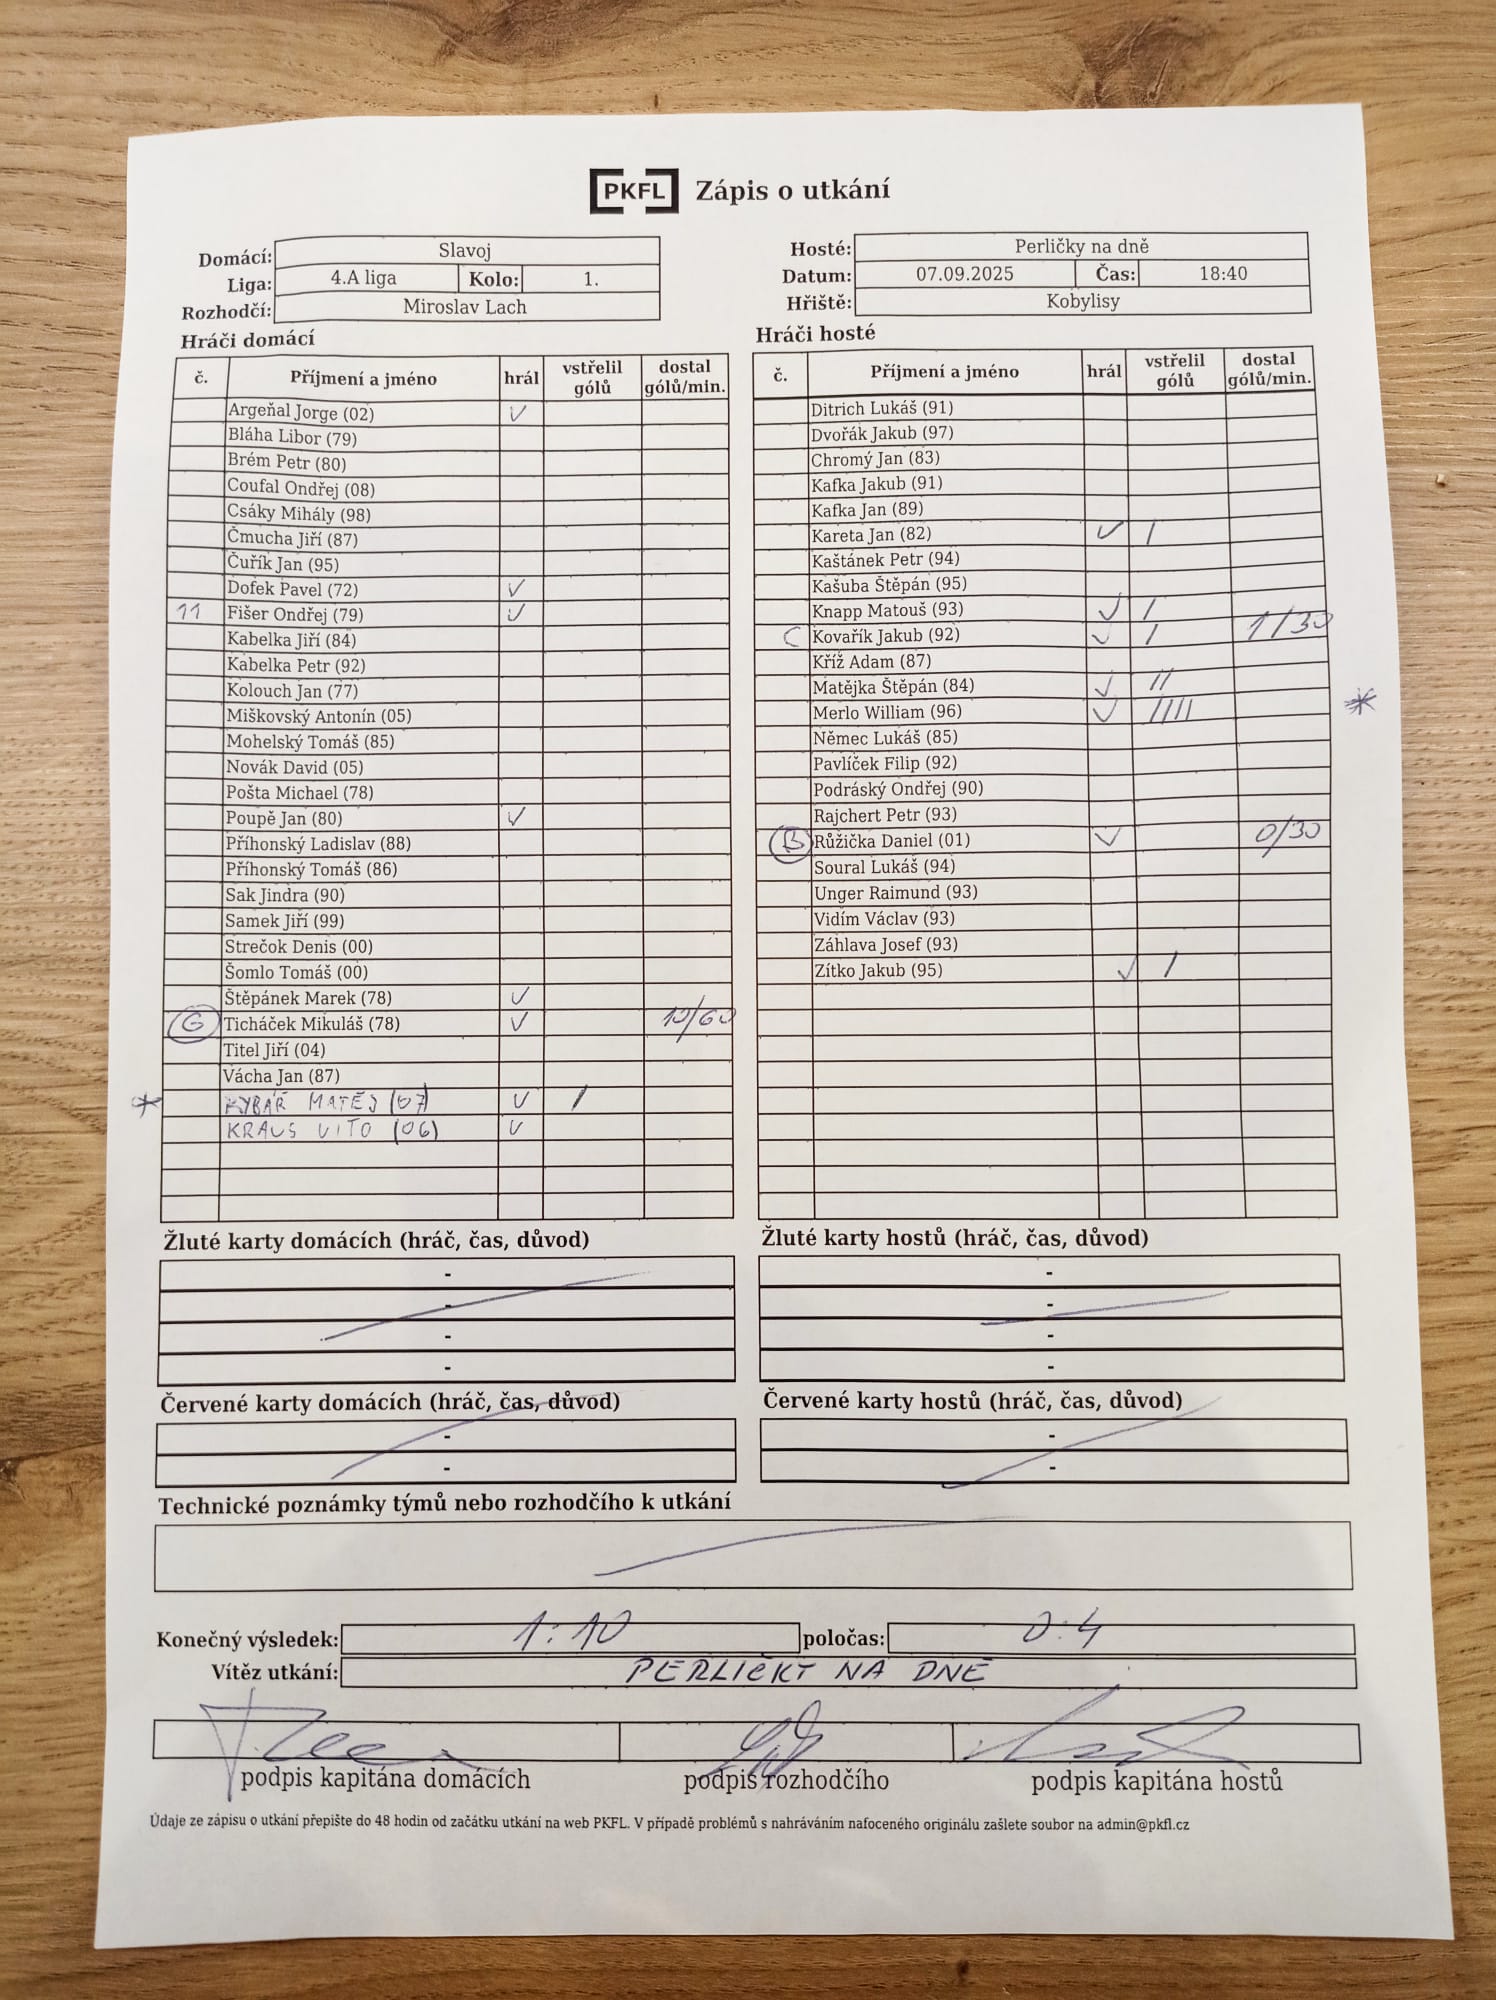 PKFL Zápis o utkání
Domácí: Slavoj
Liga: 4.A liga Kolo: 1.
Rozhodčí: Miroslav Lach
Hosté: Perličky na dně
Datum: 07.09.2025 Čas: 18:40
Hřiště: Kobylisy
Hráči domácí
č. Příjmení a jméno hrál vstřelil gólů dostal gólů/min.
Argeňal Jorge (02) V
Bláha Libor (79)
Brém Petr (80)
Coufal Ondřej (08)
Csáky Mihály (98)
Čmucha Jiří (87)
Čuřík Jan (95)
Dofek Pavel (72) V
11 Fišer Ondřej (79) V
Kabelka Jiří (84)
Kabelka Petr (92)
Kolouch Jan (77)
Miškovský Antonín (05)
Mohelský Tomáš (85)
Novák David (05)
Pošta Michael (78)
Poupě Jan (80) V
Příhonský Ladislav (88)
Příhonský Tomáš (86)
Sak Jindra (90)
Samek Jiří (99)
Strečok Denis (00)
Šomlo Tomáš (00)
Štěpánek Marek (78) V
G Ticháček Mikuláš (78) V 10/60
Titel Jiří (04)
Vácha Jan (87)
* RYBÁŘ MATĚJ (07) V I
KRAUS VITO (06) V
Hráči hosté
č. Příjmení a jméno hrál vstřelil gólů dostal gólů/min.
Ditrich Lukáš (91)
Dvořák Jakub (97)
Chromý Jan (83)
Kafka Jakub (91)
Kafka Jan (89)
Kareta Jan (82) V I
Kaštánek Petr (94)
Kašuba Štěpán (95)
Knapp Matouš (93) V I
C Kovařík Jakub (92) V I 1/30
Kříž Adam (87)
Matějka Štěpán (84) V II
Merlo William (96) V IIII *
Němec Lukáš (85)
Pavlíček Filip (92)
Podráský Ondřej (90)
Rajchert Petr (93)
B Růžička Daniel (01) V 0/30
Soural Lukáš (94)
Unger Raimund (93)
Vidím Václav (93)
Záhlava Josef (93)
Zítko Jakub (95) V I
Žluté karty domácích (hráč, čas, důvod)
-
-
-
-
Žluté karty hostů (hráč, čas, důvod)
-
-
-
-
Červené karty domácích (hráč, čas, důvod)
-
-
Červené karty hostů (hráč, čas, důvod)
-
-
Technické poznámky týmů nebo rozhodčího k utkání
Konečný výsledek: 1:10 poločas: 0:4
Vítěz utkání: PERLIČKY NA DNĚ
podpis kapitána domácích podpis rozhodčího podpis kapitána hostů
Údaje ze zápisu o utkání přepište do 48 hodin od začátku utkání na web PKFL. V případě problémů s nahráváním nafoceného originálu zašlete soubor na admin@pkfl.cz